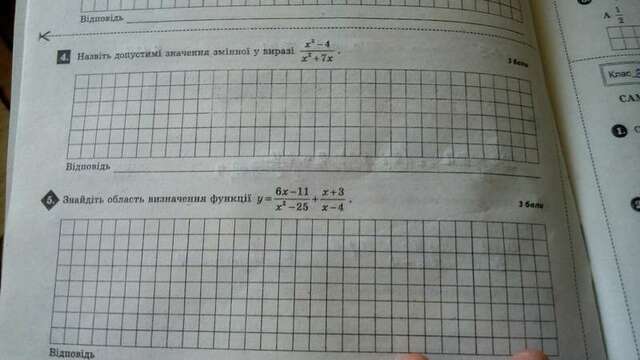 Відповідь
4. Назвіть допустимі значення змінної у виразі (x²−4)/(x²+7x).
3 бали
Відповідь
5. Знайдіть область визначення функції y=(6x−11)/(x²−25)+(x+3)/(x−4).
3 бали
Відповідь
А 1/2
Клас
САМ
1. С